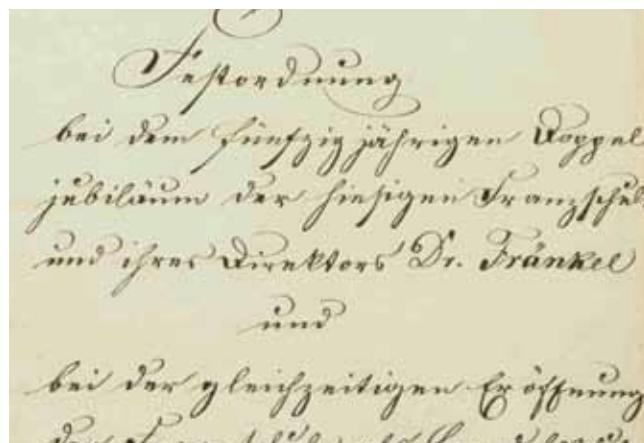 Festordnung
bei dem fünfzigjährigen Doppel
jubiläum der hiesigen Franzschul
und ihres Direktors Dr. Fränkel
und
bei der gleichzeitigen Eröffnung
der